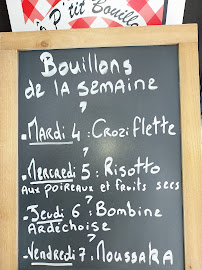 P'tit Bouillo
Bouillons
de la semaine
?
. Mardi 4 : Croziflette
?
. Mercredi 5 : Risotto
aux poireaux et fruits secs
?
. Jeudi 6 : Bombine
Ardéchoise
?
. Vendredi 7 . Moussaka